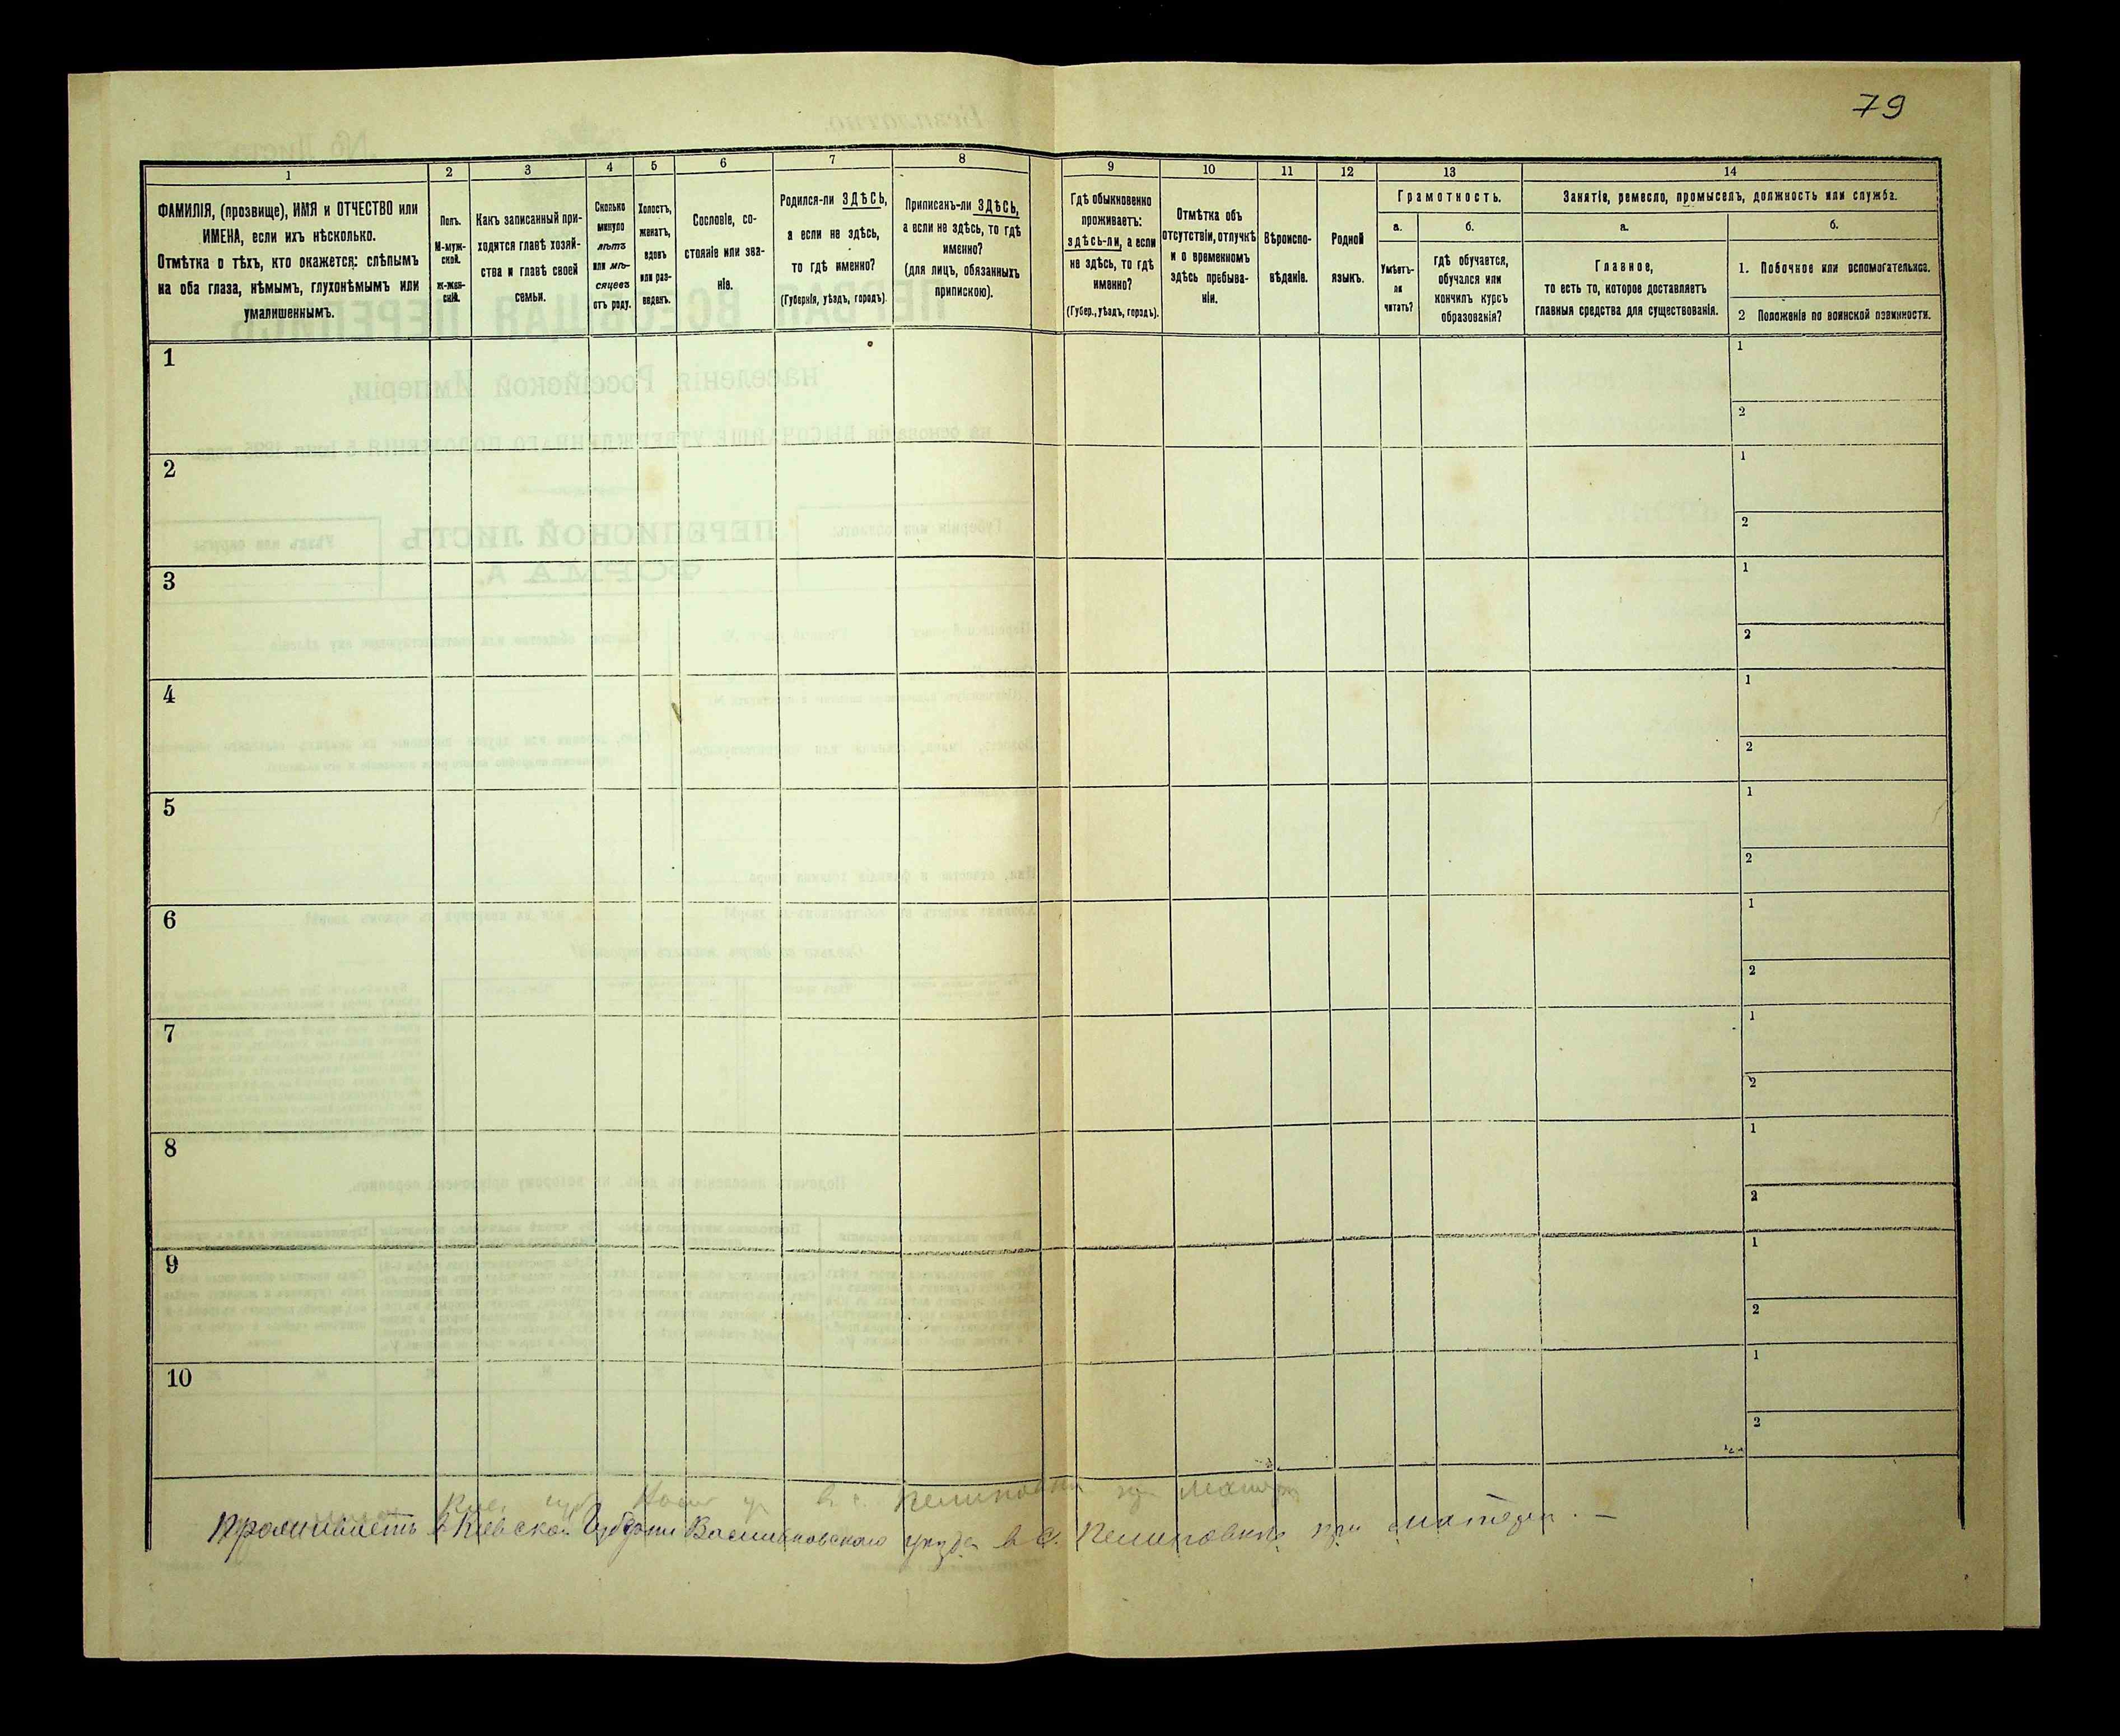 79
1
2
3
4
5
6
7
8
9
10
11
12
13
14
ФАМИЛІЯ, (прозвище), ИМЯ и ОТЧЕСТВО или
ИМЕНА, если ихъ нѣсколько.
Отмѣтка о тѣхъ, кто окажется: слѣпымъ
на оба глаза, нѣмымъ, глухонѣмымъ или
умалишеннымъ.
Полъ.
М-муж-
ской.
ж-жен-
скій.
Какъ записанный при-
ходится главѣ хозяй-
ства и главѣ своей
семьи.
Сколько
минуло
лѣтъ
или мѣ-
сяцевъ
отъ роду.
Холостъ,
женатъ,
вдовъ
или раз-
веденъ.
Сословіе, со-
стояніе или зва-
ніе.
Родился-ли ЗДѢСЬ,
а если не здѣсь,
то гдѣ именно?
(Губернія, уѣздъ, городъ).
Приписанъ-ли ЗДѢСЬ,
а если не здѣсь, то гдѣ
именно?
(для лицъ, обязанныхъ
припискою).
Гдѣ обыкновенно
проживаетъ:
здѣсь-ли, а если
не здѣсь, то гдѣ
именно?
(Губер., уѣздъ, городъ).
Отмѣтка объ
отсутствіи, отлучкѣ
и о временномъ
здѣсь пребыва-
ніи.
Вѣроиспо-
вѣданіе.
Родной
языкъ.
Грамотность.
а.
Умѣетъ-
ли
читать?
б.
гдѣ обучается,
обучался или
кончилъ курсъ
образованія?
Занятіе, ремесло, промыселъ, должность или служба.
а.
Главное,
то есть то, которое доставляетъ
главныя средства для существованія.
б.
1. Побочное или вспомогательное.
2 Положеніе по воинской повинности.
1
1
2
2
1
2
3
1
2
4
1
2
5
1
2
6
1
2
7
1
2
8
1
2
9
1
2
10
1
2
Проживаетъ в Киевской Губерни Васильковского уезда в с. при матери. —